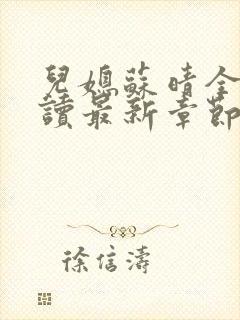 兒媳蘇晴全
讀最新章節
徐信濤